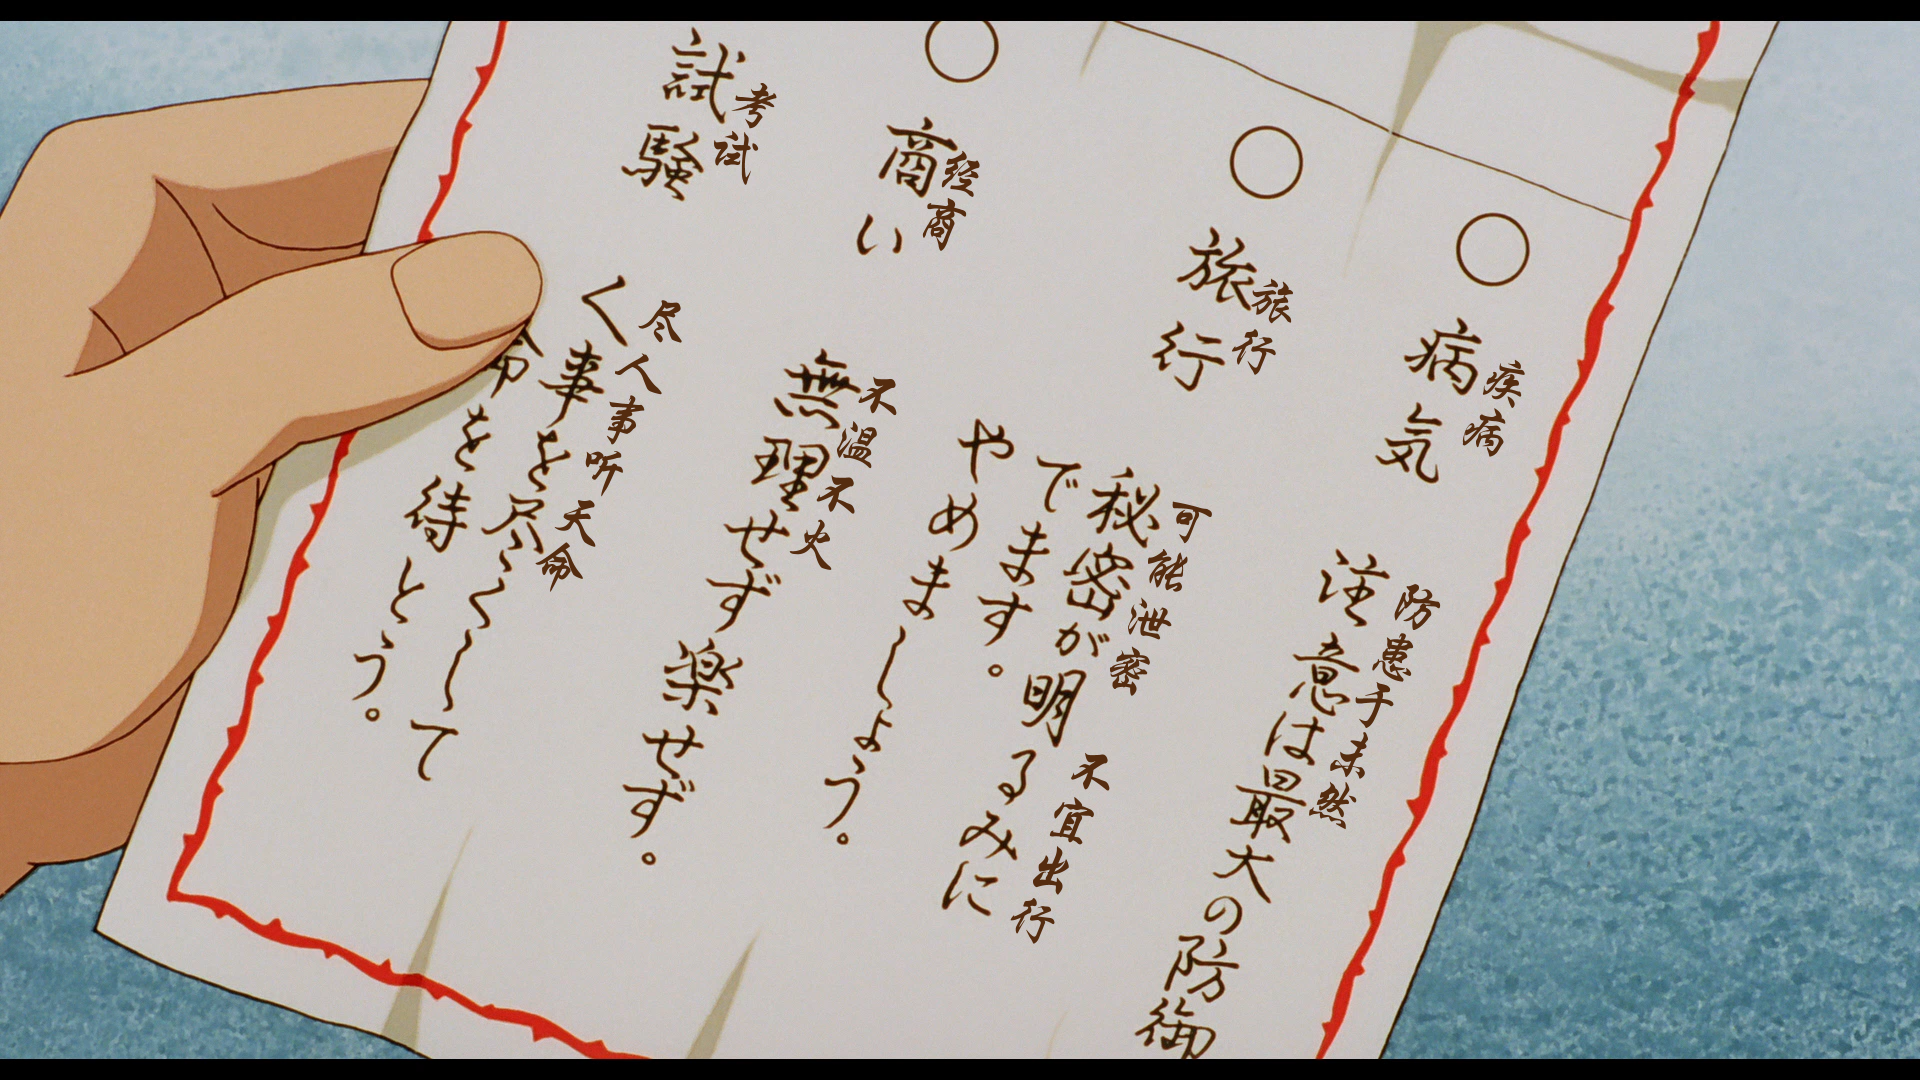 ○病気
疾病
注意は最大の防御
防患于未然
○旅行
旅行
秘密が明るみに
でます。
やめましょう。
可能泄密
不宜出行
○商い
经商
無理せず楽せず。
不温不火
試験
考试
く事を尽くして
命を待とう。
尽人事听天命